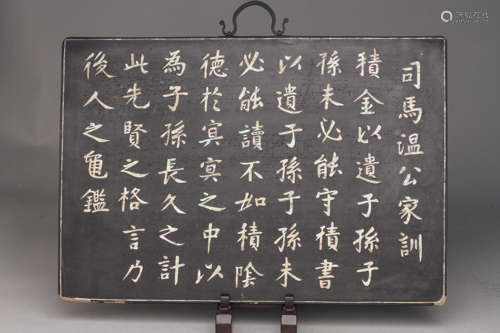 司馬溫公家訓
積金以遺子孫子
孫未必能守積書
以遺于孫子孫未
必能讀不如積陰
德於冥冥之中以
為子孫長久之計
此先賢之格言乃
後人之龜鑑